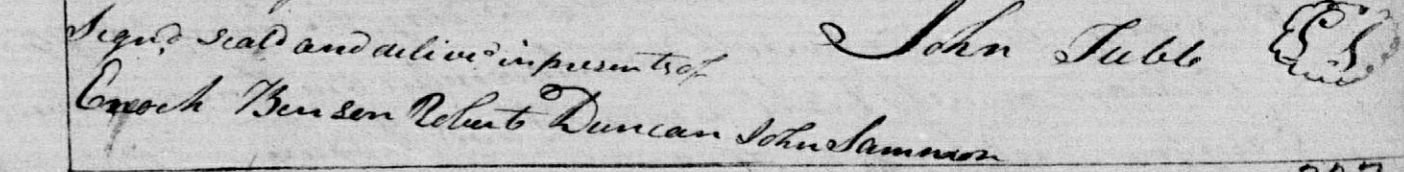 Signd seald and deliverd in presents of John Tubb LS
Enoch Benson Robert Duncan John Sammon